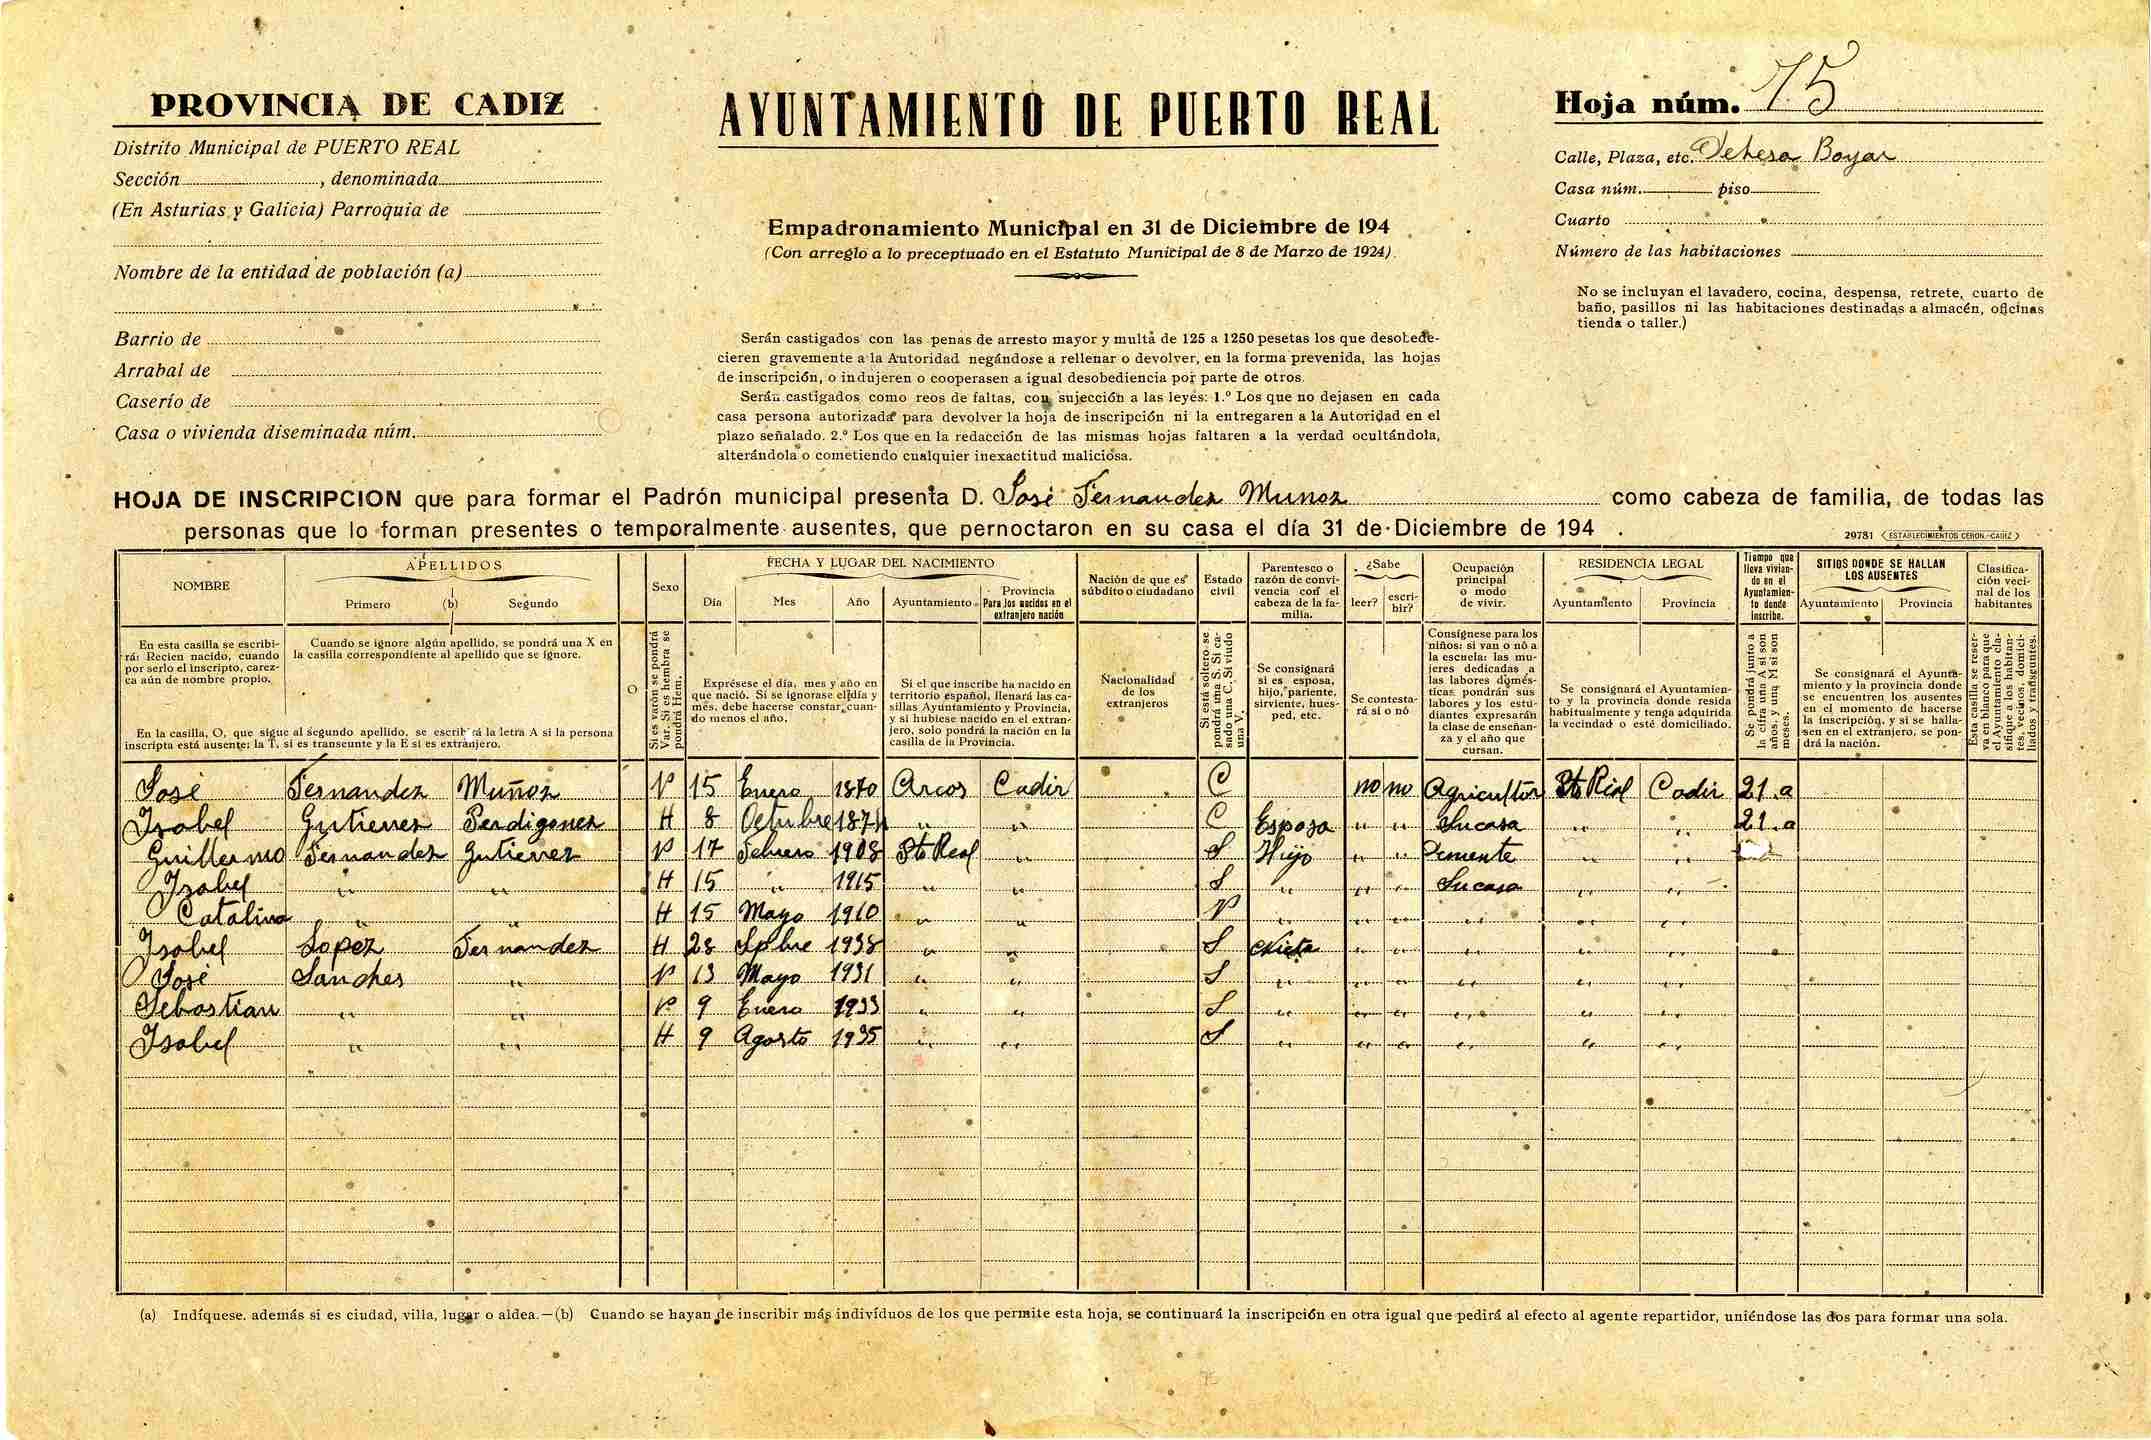 PROVINCIA DE CADIZ
Distrito Municipal de PUERTO REAL
Sección , denominada
(En Asturias y Galicia) Parroquia de
Nombre de la entidad de población (a)
Barrio de
Arrabal de
Caserío de
Casa o vivienda diseminada núm.
AYUNTAMIENTO DE PUERTO REAL
Empadronamiento Municipal en 31 de Diciembre de 194
(Con arreglo a lo preceptuado en el Estatuto Municipal de 8 de Marzo de 1924).
Serán castigados con las penas de arresto mayor y multa de 125 a 1250 pesetas los que desobede-
cieren gravemente a la Autoridad negándose a rellenar o devolver, en la forma prevenida, las hojas
de inscripción, o indujeren o cooperasen a igual desobediencia por parte de otros.
Serán castigados como reos de faltas, con sujección a las leyes: 1.º Los que no dejasen en cada
casa persona autorizada para devolver la hoja de inscripción ni la entregaren a la Autoridad en el
plazo señalado. 2.º Los que en la redacción de las mismas hojas faltaren a la verdad ocultándola,
alterándola o cometiendo cualquier inexactitud maliciosa.
Hoja núm. 75
Calle, Plaza, etc. Dehesa Boyar
Casa núm. piso
Cuarto
Número de las habitaciones
No se incluyan el lavadero, cocina, despensa, retrete, cuarto de
baño, pasillos ni las habitaciones destinadas a almacén, oficinas
tienda o taller.)
HOJA DE INSCRIPCION que para formar el Padrón municipal presenta D. José Fernandez Munoz como cabeza de familia, de todas las
personas que lo forman presentes o temporalmente ausentes, que pernoctaron en su casa el día 31 de Diciembre de 194 .
29781 ESTABLECIMIENTOS CERON.-CADIZ
NOMBRE
APELLIDOS
Primero (b) Segundo
O
Sexo
FECHA Y LUGAR DEL NACIMIENTO
Día Mes Año Ayuntamiento
Provincia
Para los nacidos en el
extranjero nación
Nación de que es
súbdito o ciudadano
Estado
civil
Parentesco o
razón de convi-
vencia con el
cabeza de la fa-
milia.
¿Sabe
leer? escri-
bir?
Ocupación
principal
o modo
de vivir.
RESIDENCIA LEGAL
Ayuntamiento Provincia
Tiempo que
lleva vivien-
do en el
Ayuntamien-
to donde
inscribe.
SITIOS DONDE SE HALLAN
LOS AUSENTES
Ayuntamiento Provincia
Clasifica-
ción veci-
nal de los
habitantes
En esta casilla se escribi-
rá: Recien nacido, cuando
por serlo el inscripto, carez-
ca aún de nombre propio.
Cuando se ignore algún apellido, se pondrá una X en
la casilla correspondiente al apellido que se ignore.
En la casilla, O, que sigue al segundo apellido, se escribirá la letra A si la persona
inscripta está ausente; la T, si es transeunte y la E si es extranjero.
Si es varón se pondrá
Var. Si es hembra se
pondrá Hem.
Exprésese el día, mes y año en
que nació. Si se ignorase el día y
mes, debe hacerse constar cuan-
do menos el año.
Si el que inscribe ha nacido en
territorio español, llenará las ca-
sillas Ayuntamiento y Provincia,
y si hubiese nacido en el extran-
jero, solo pondrá la nación en la
casilla de la Provincia.
Nacionalidad
de los
extranjeros
Si está soltero se
pondrá una S. Si ca-
sado una C. Si viudo
una V.
Se consignará
si es esposa,
hijo, pariente,
sirviente, hues-
ped, etc.
Se contesta-
rá si o nó
Consígnese para los
niños: si van o nó a
la escuela: las mu-
jeres dedicadas a
las labores domés-
ticas, pondrán sus
labores y los estu-
diantes expresarán
la clase de enseñan-
za y el año que
cursan.
Se consignará el Ayuntamien-
to y la provincia donde resida
habitualmente y tenga adquirida
la vecindad o esté domiciliado.
Se pondrá junto a
la cifra una A si son
años, y una M si son
meses.
Se consignará el Ayunta-
miento y la provincia donde
se encuentren los ausentes
en el momento de hacerse
la inscripción, y si se halla-
sen en el extranjero, se pon-
drá la nación.
Esta casilla se reser-
va en blanco para que
el Ayuntamiento cla-
sifique a los habitan-
tes, vecinos, domici-
liados y transeuntes.
José Fernandez Muñoz V 15 Enero 1870 Arcos Cadiz C no no Agricultor Pto Real Cadiz 21 a
Isabel Gutierrez Perdigones H 8 Octubre 1874 " " C Esposa " " Sucasa " " 21 a
Guillermo Fernandez Gutierrez V 17 Febrero 1908 Pto Real " S Hijo " " Demente " "
Isabel " " H 15 " 1915 " " S " " " Sucasa " "
Catalina " " H 15 Mayo 1910 " " V " " " " " "
Isabel Lopez Fernandez H 28 Spbre 1938 " " S Nieta " " " " "
José Sanches " V 13 Mayo 1931 " " S " " " " " "
Sebastian " " V 9 Enero 1933 " " S " " " " " "
Isabel " " H 9 Agosto 1935 " " S " " " " " "
(a) Indíquese. además si es ciudad, villa, lugar o aldea.—(b) Cuando se hayan de inscribir más indivíduos de los que permite esta hoja, se continuará la inscripción en otra igual que pedirá al efecto al agente repartidor, uniéndose las dos para formar una sola.